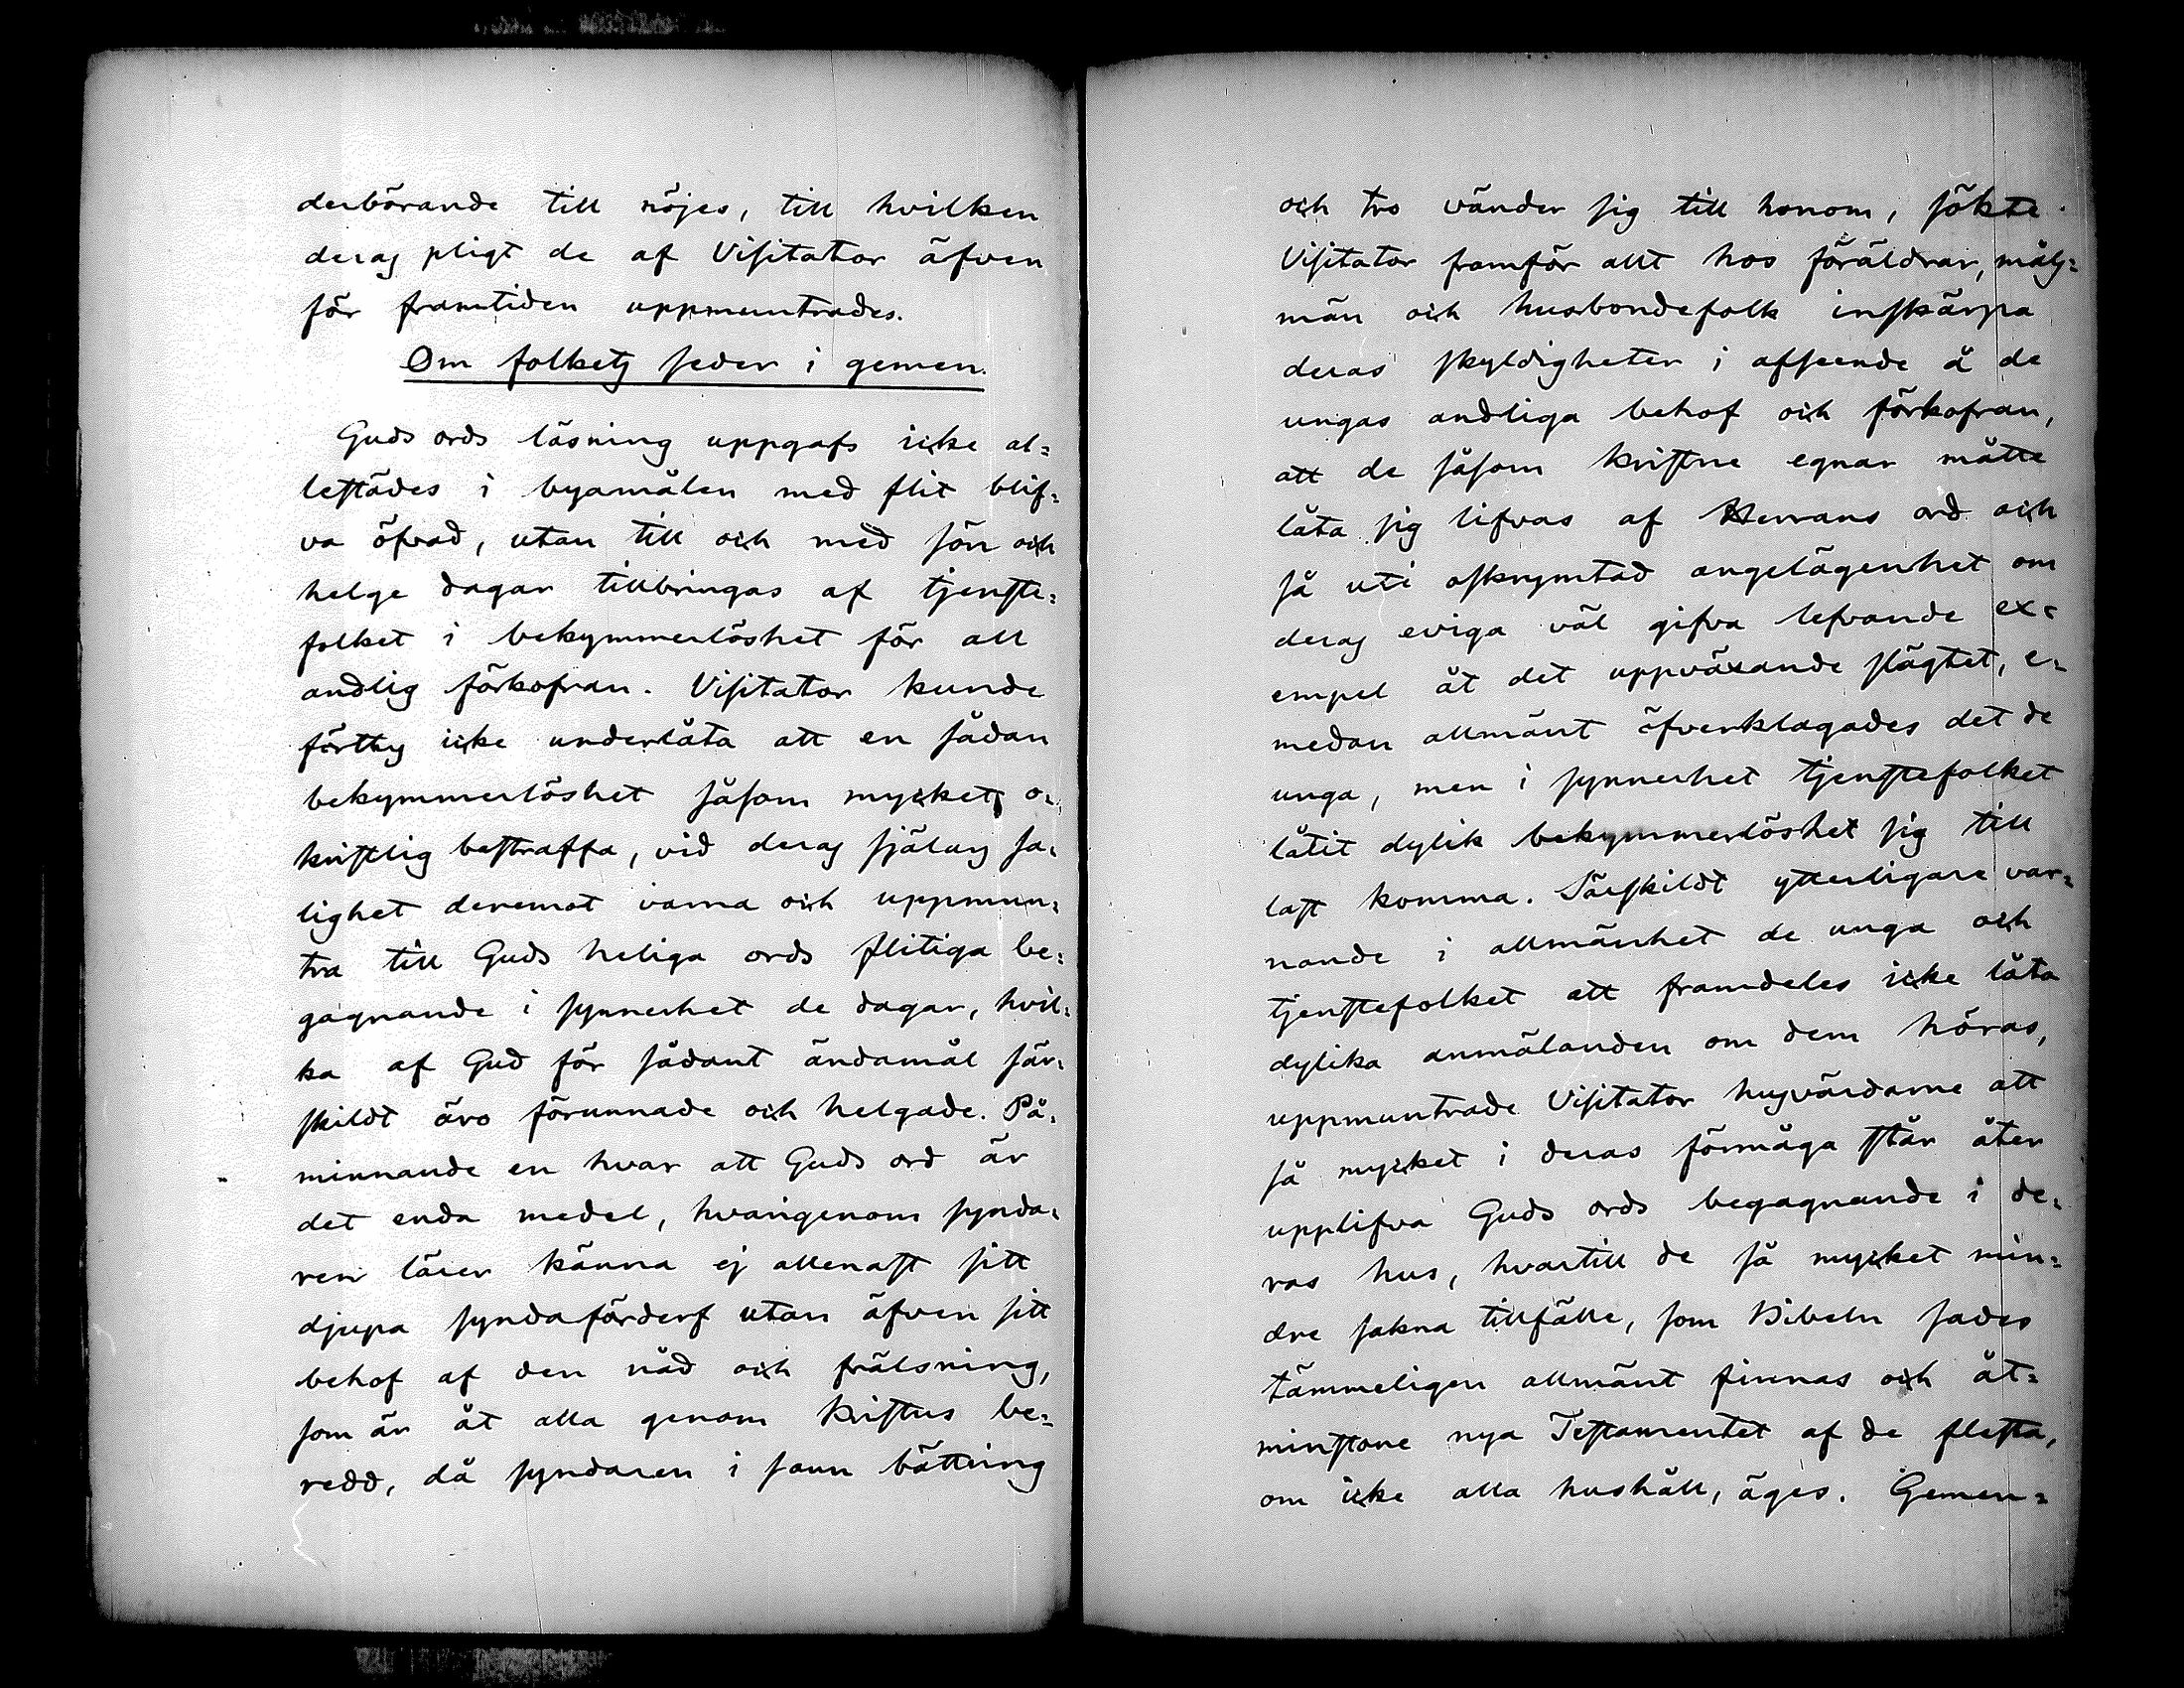 derbörande till nöjes, till hvilken
deras pligt de af Visitator äfven
för framtiden uppmuntrades.
Om folkets seder i gemen.
Guds ords läsning uppgafs icke al=
lestädes i byamålen med flit blif=
va öfvad, utan till och med sön och
helge dagar tillbringas af tjenste=
folket i bekymmerlöshet för all
andlig förkofran. Visitator kunde
förthy icke underlåta att en sådan
bekymmerlöshet såsom mycket o=
kristlig bestraffa, vid deras själars sa=
lighet deremot varna och uppmun=
tra till Guds heliga ords flitiga be=
gagnande i synnerhet de dagar, hvil=
ka af Gud för sådant ändamål sär=
skildt äro förunnade och helgade. På=
minnande en hvar att Guds ord är
det enda medel, hvarigenom synda=
ren lärer känna ej allenast sitt
djupa syndaförderf utan äfven sitt
behof af den nåd och frälsning,
som är åt alla genom Kristus be=
redd, då syndaren i sann bättring
och tro vänder sig till honom, sökte
Visitator framför allt hos föräldrar, måls=
män och husbondefolk inskärpa
deras skyldigheter i afseende å de
ungas andliga behof och förkofran,
att de såsom kristne egnar måtte
låta sig lifvas af Herrans ord och
så uti oskrymtad angelägenhet om
deras eviga väl gifva lefvande ex=
empel åt det uppväxande slägtet, e=
medan allmänt öfverklagades det de
unga, men i synnerhet tjenstefolket
låtit dylik bekymmerlöshet sig till
last komma. Särskildt ytterligare var=
nande i allmänhet de unga och
tjenstefolket att framdeles icke låta
dylika anmälanden om dem höras,
uppmuntrade Visitator husvärdarne att
så mycket i deras förmåga står åter
upplifva Guds ords begagnande i de=
ras hus, hvartill de så mycket min=
dre sakna tillfälle, som Bibeln sades
tämmeligen allmänt finnas och åt=
minstone nya Testamentet af de flesta,
om icke alla hushåll, äges. Gemen=